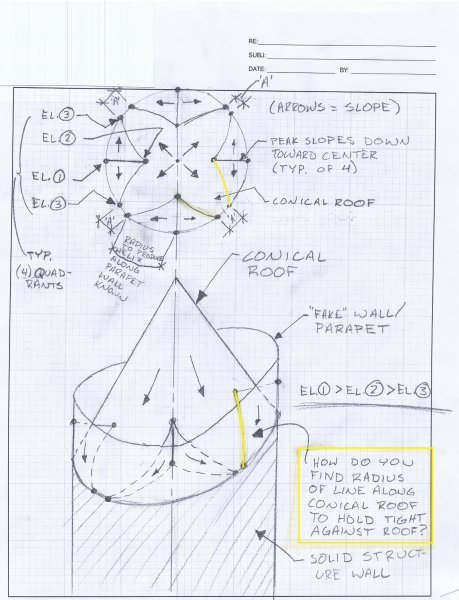 RE:
SUBJ:
DATE: BY:
'A'
(ARROWS = SLOPE)
EL.③
'A'
EL.②
PEAK SLOPES DOWN
TOWARD CENTER
(TYP. OF 4)
EL.①
EL.③
CONICAL ROOF
'A'
'A'
TYP.
(4) QUAD-
RANTS
RADIUS
TO PRODUCE
HELIX
ALONG
PARAPET
WALL
KNOWN
CONICAL
ROOF
"FAKE" WALL/
PARAPET
EL.① > EL.② > EL.③
HOW DO YOU
FIND RADIUS
OF LINE ALONG
CONICAL ROOF
TO HOLD TIGHT
AGAINST ROOF?
SOLID STRUCT-
URE WALL